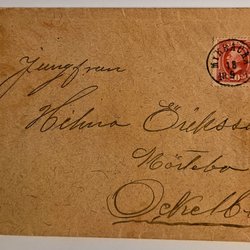 Jungfrun
Helma Eriksso
Mörtebo
Ockelb